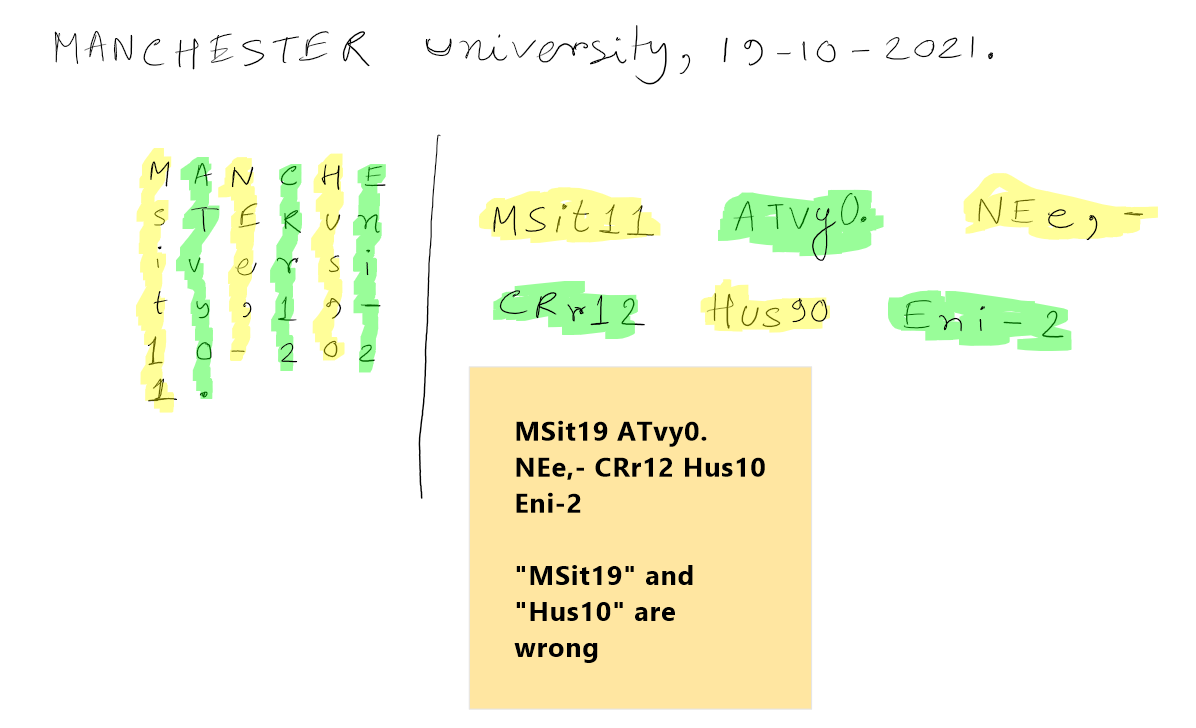 MANCHESTER university, 19-10-2021.
M A N C H E
S T E R u n
i v e r s i
t y , 1 9 -
1 0 - 2 0 2
1 .
MSit11 ATvy0. NEe,-
CRr12 Hus90 Eni-2
MSit19 ATvy0.
NEe,- CRr12 Hus10
Eni-2
"MSit19" and
"Hus10" are
wrong